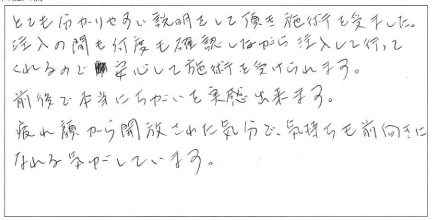 とても分かりやすい説明をして頂き施術を受ました。
注入の間も何度も確認しながら注入して行って
くれるので安心して施術を受けられます。
前後で本当にちがいを実感出来ます。
疲れ顔から開放された気分で、気持ちも前向きに
なれる気がしています。